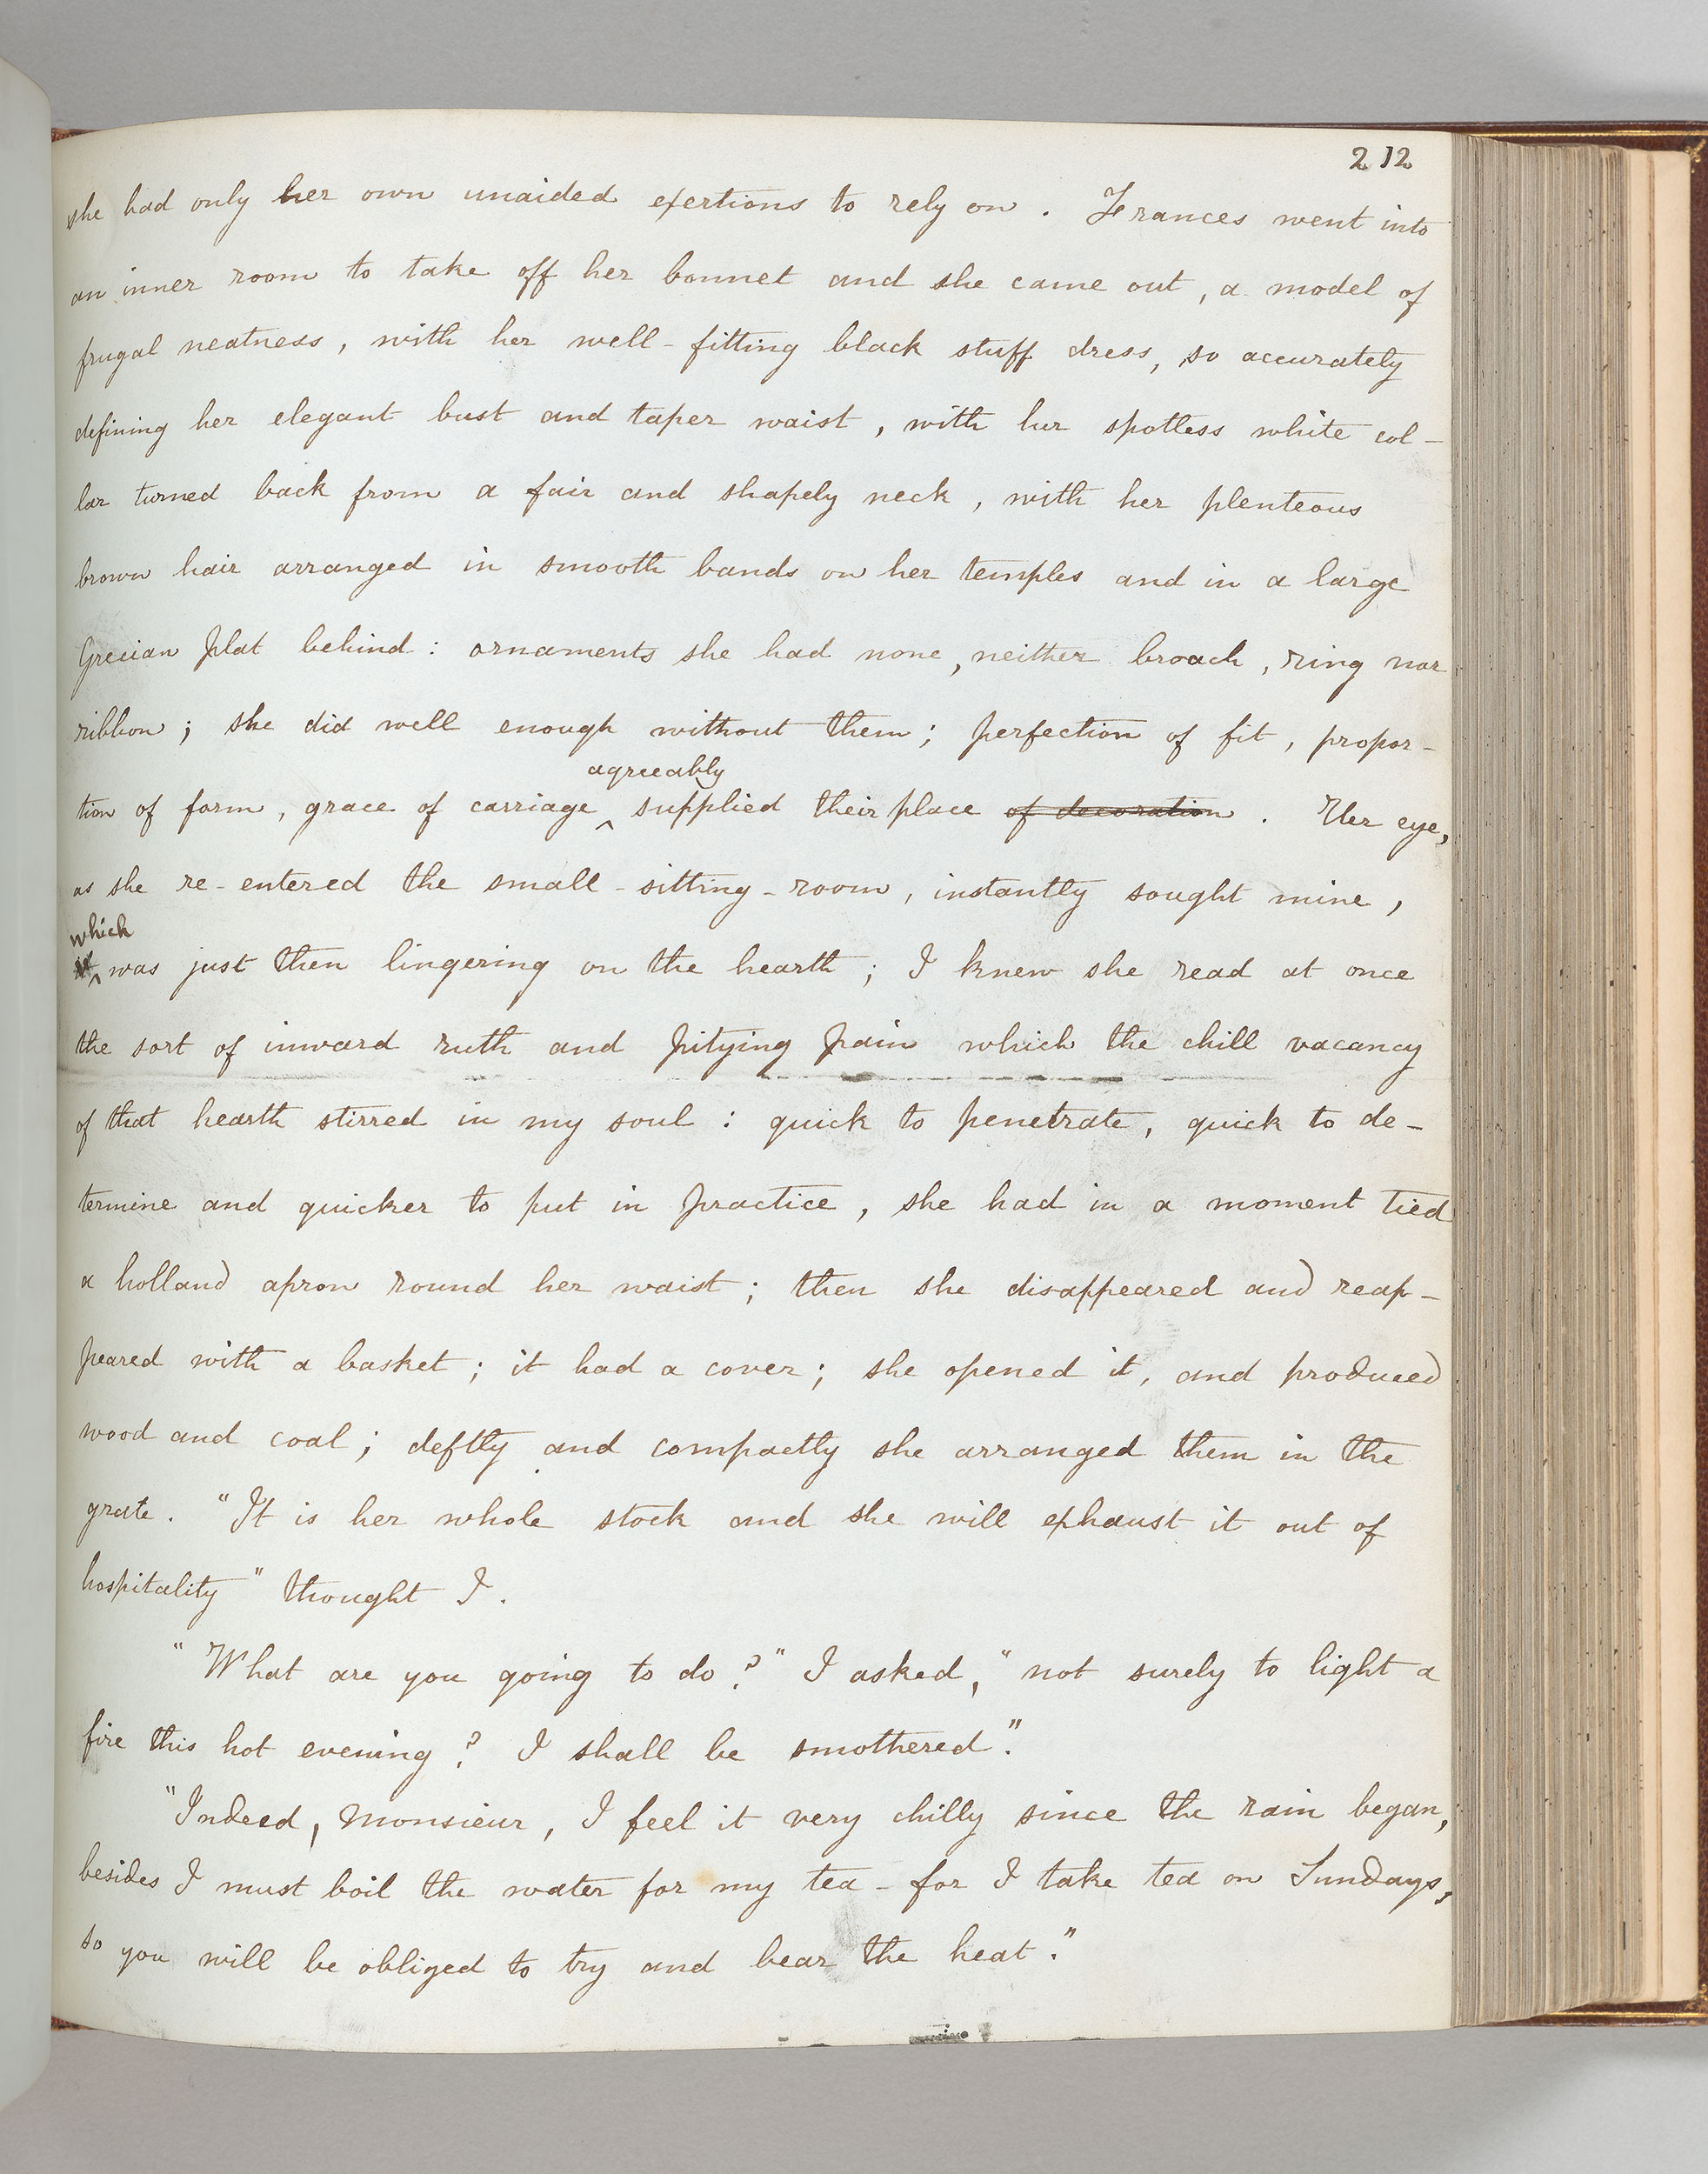 212
she had only her own unaided exertions to rely on . Frances went into
an inner room to take off her bonnet and she came out , a model of
frugal neatness , with her well-fitting black stuff dress, so accurately
defining her elegant bust and taper waist , with her spotless white col-
lar turned back from a fair and shapely neck , with her plenteous
brown hair arranged in smooth bands on her temples and in a large
Grecian plat behind : ornaments she had none, neither broach , ring nor
ribbon ; she did well enough without them ; perfection of fit , propor-
agreeably
tion of form , grace of carriage ^ supplied their place of decoration . Her eye,
as she re-entered the small-sitting-room , instantly sought mine ,
which
it ^ was just then lingering on the hearth ; I knew she read at once
the sort of inward ruth and pitying pain which the chill vacancy
of that hearth stirred in my soul : quick to penetrate , quick to de-
termine and quicker to put in practice , she had in a moment tied
a holland apron round her waist ; then she disappeared and reap-
peared with a basket ; it had a cover ; she opened it , and produced
wood and coal ; deftly and compactly she arranged them in the
grate . "It is her whole stock and she will exhaust it out of
hospitality" thought I .
"What are you going to do ?" I asked , "not surely to light a
fire this hot evening ? I shall be smothered."
"Indeed , Monsieur , I feel it very chilly since the rain began,
besides I must boil the water for my tea - for I take tea on Sundays,
so you will be obliged to try and bear the heat."